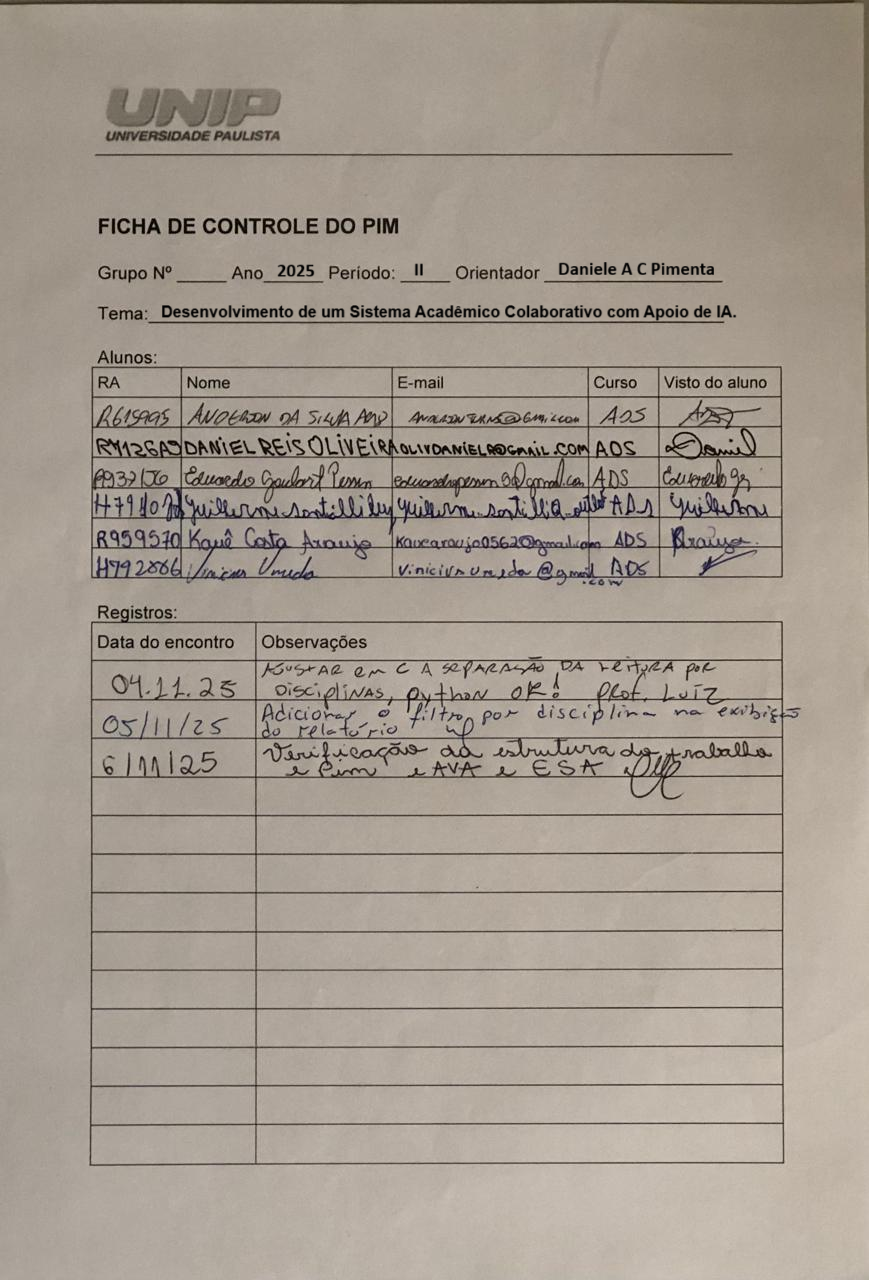 UNIP
UNIVERSIDADE PAULISTA
FICHA DE CONTROLE DO PIM
Grupo Nº ______ Ano 2025 Período: II Orientador Daniele A C Pimenta
Tema: Desenvolvimento de um Sistema Acadêmico Colaborativo com Apoio de IA.
Alunos:
RA Nome E-mail Curso Visto do aluno
ANDERSON DA SILVA ADS
DANIEL REIS OLIVEIRA OLIVDANIELR@GMAIL.COM ADS Daniel
Eduardo ADS
Guilherme ADS Guilherme
R959570 Kauê Costa Araujo kauearaujo0562@gmail.com ADS Araujo
H792886 Vinicius Umeda viniciusumeda@gmail.com ADS
Registros:
Data do encontro Observações
04.11.25 AJUSTAR em C A SEPARAÇÃO DA LEITURA POR
DISCIPLINAS, python OK! Prof. LUIZ
05/11/25 Adicionar o filtro por disciplina na exibição
do relatório
6/11/25 Verificação da estrutura do trabalho
e Pim e AVA e ESA